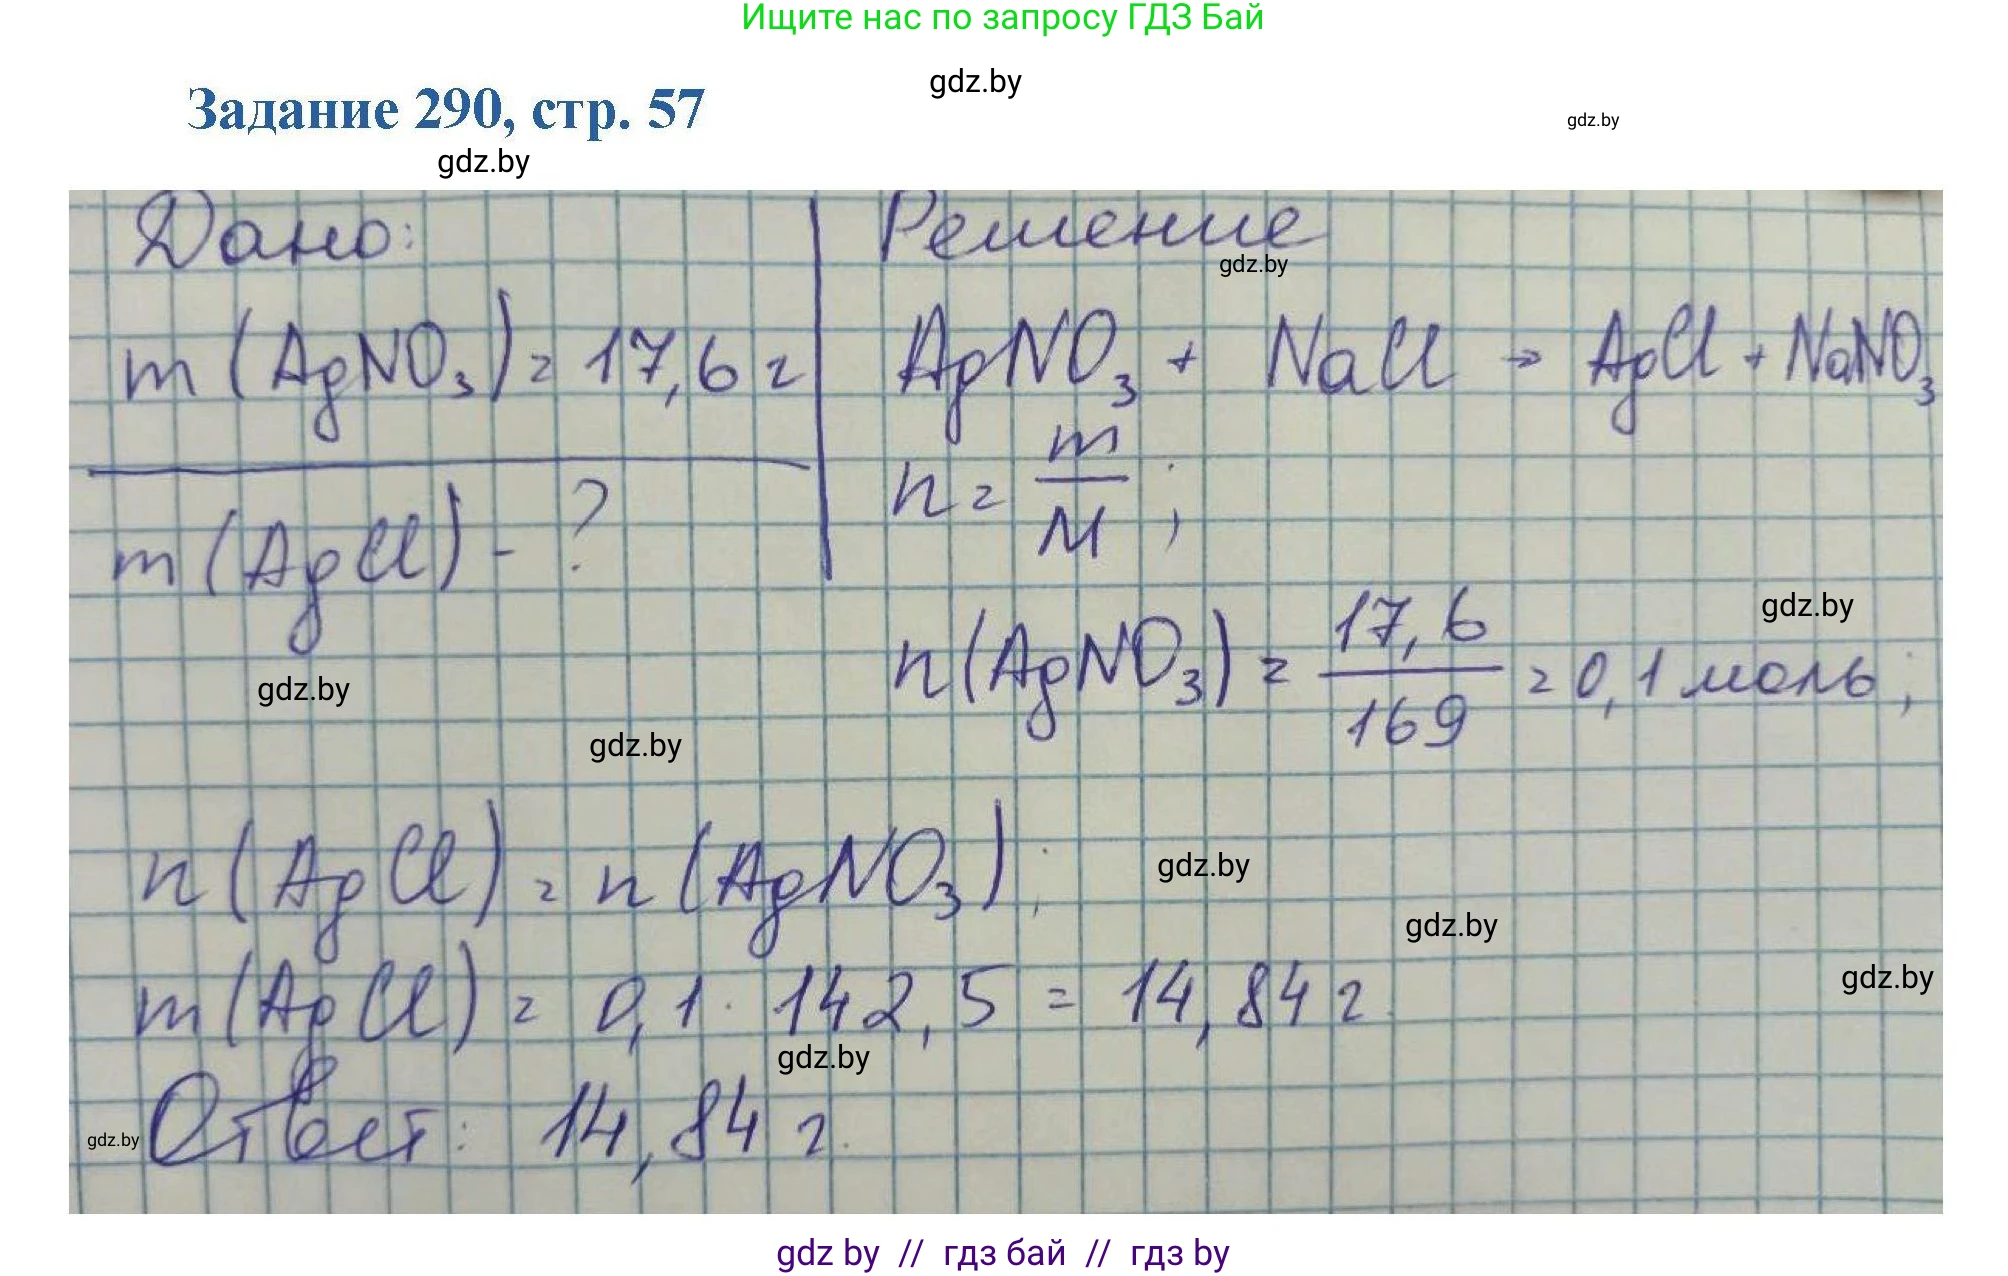 Ищите нас по запросу ГДЗ Бай
gdz.by
Задание 290, стр. 57
gdz.by
gdz.by
Дано:
m(AgNO₃) = 17,6 г
m(AgCl) - ?
Решение
gdz.by
AgNO₃ + NaCl → AgCl + NaNO₃
n = m/M;
gdz.by
n(AgNO₃) = 17,6/169 = 0,1 моль;
gdz.by
gdz.by
n(AgCl) = n(AgNO₃);
gdz.by
gdz.by
m(AgCl) = 0,1 · 142,5 = 14,84 г.
gdz.by
gdz.by
Ответ: 14,84 г.
gdz.by
gdz by // гдз бай // гдз by